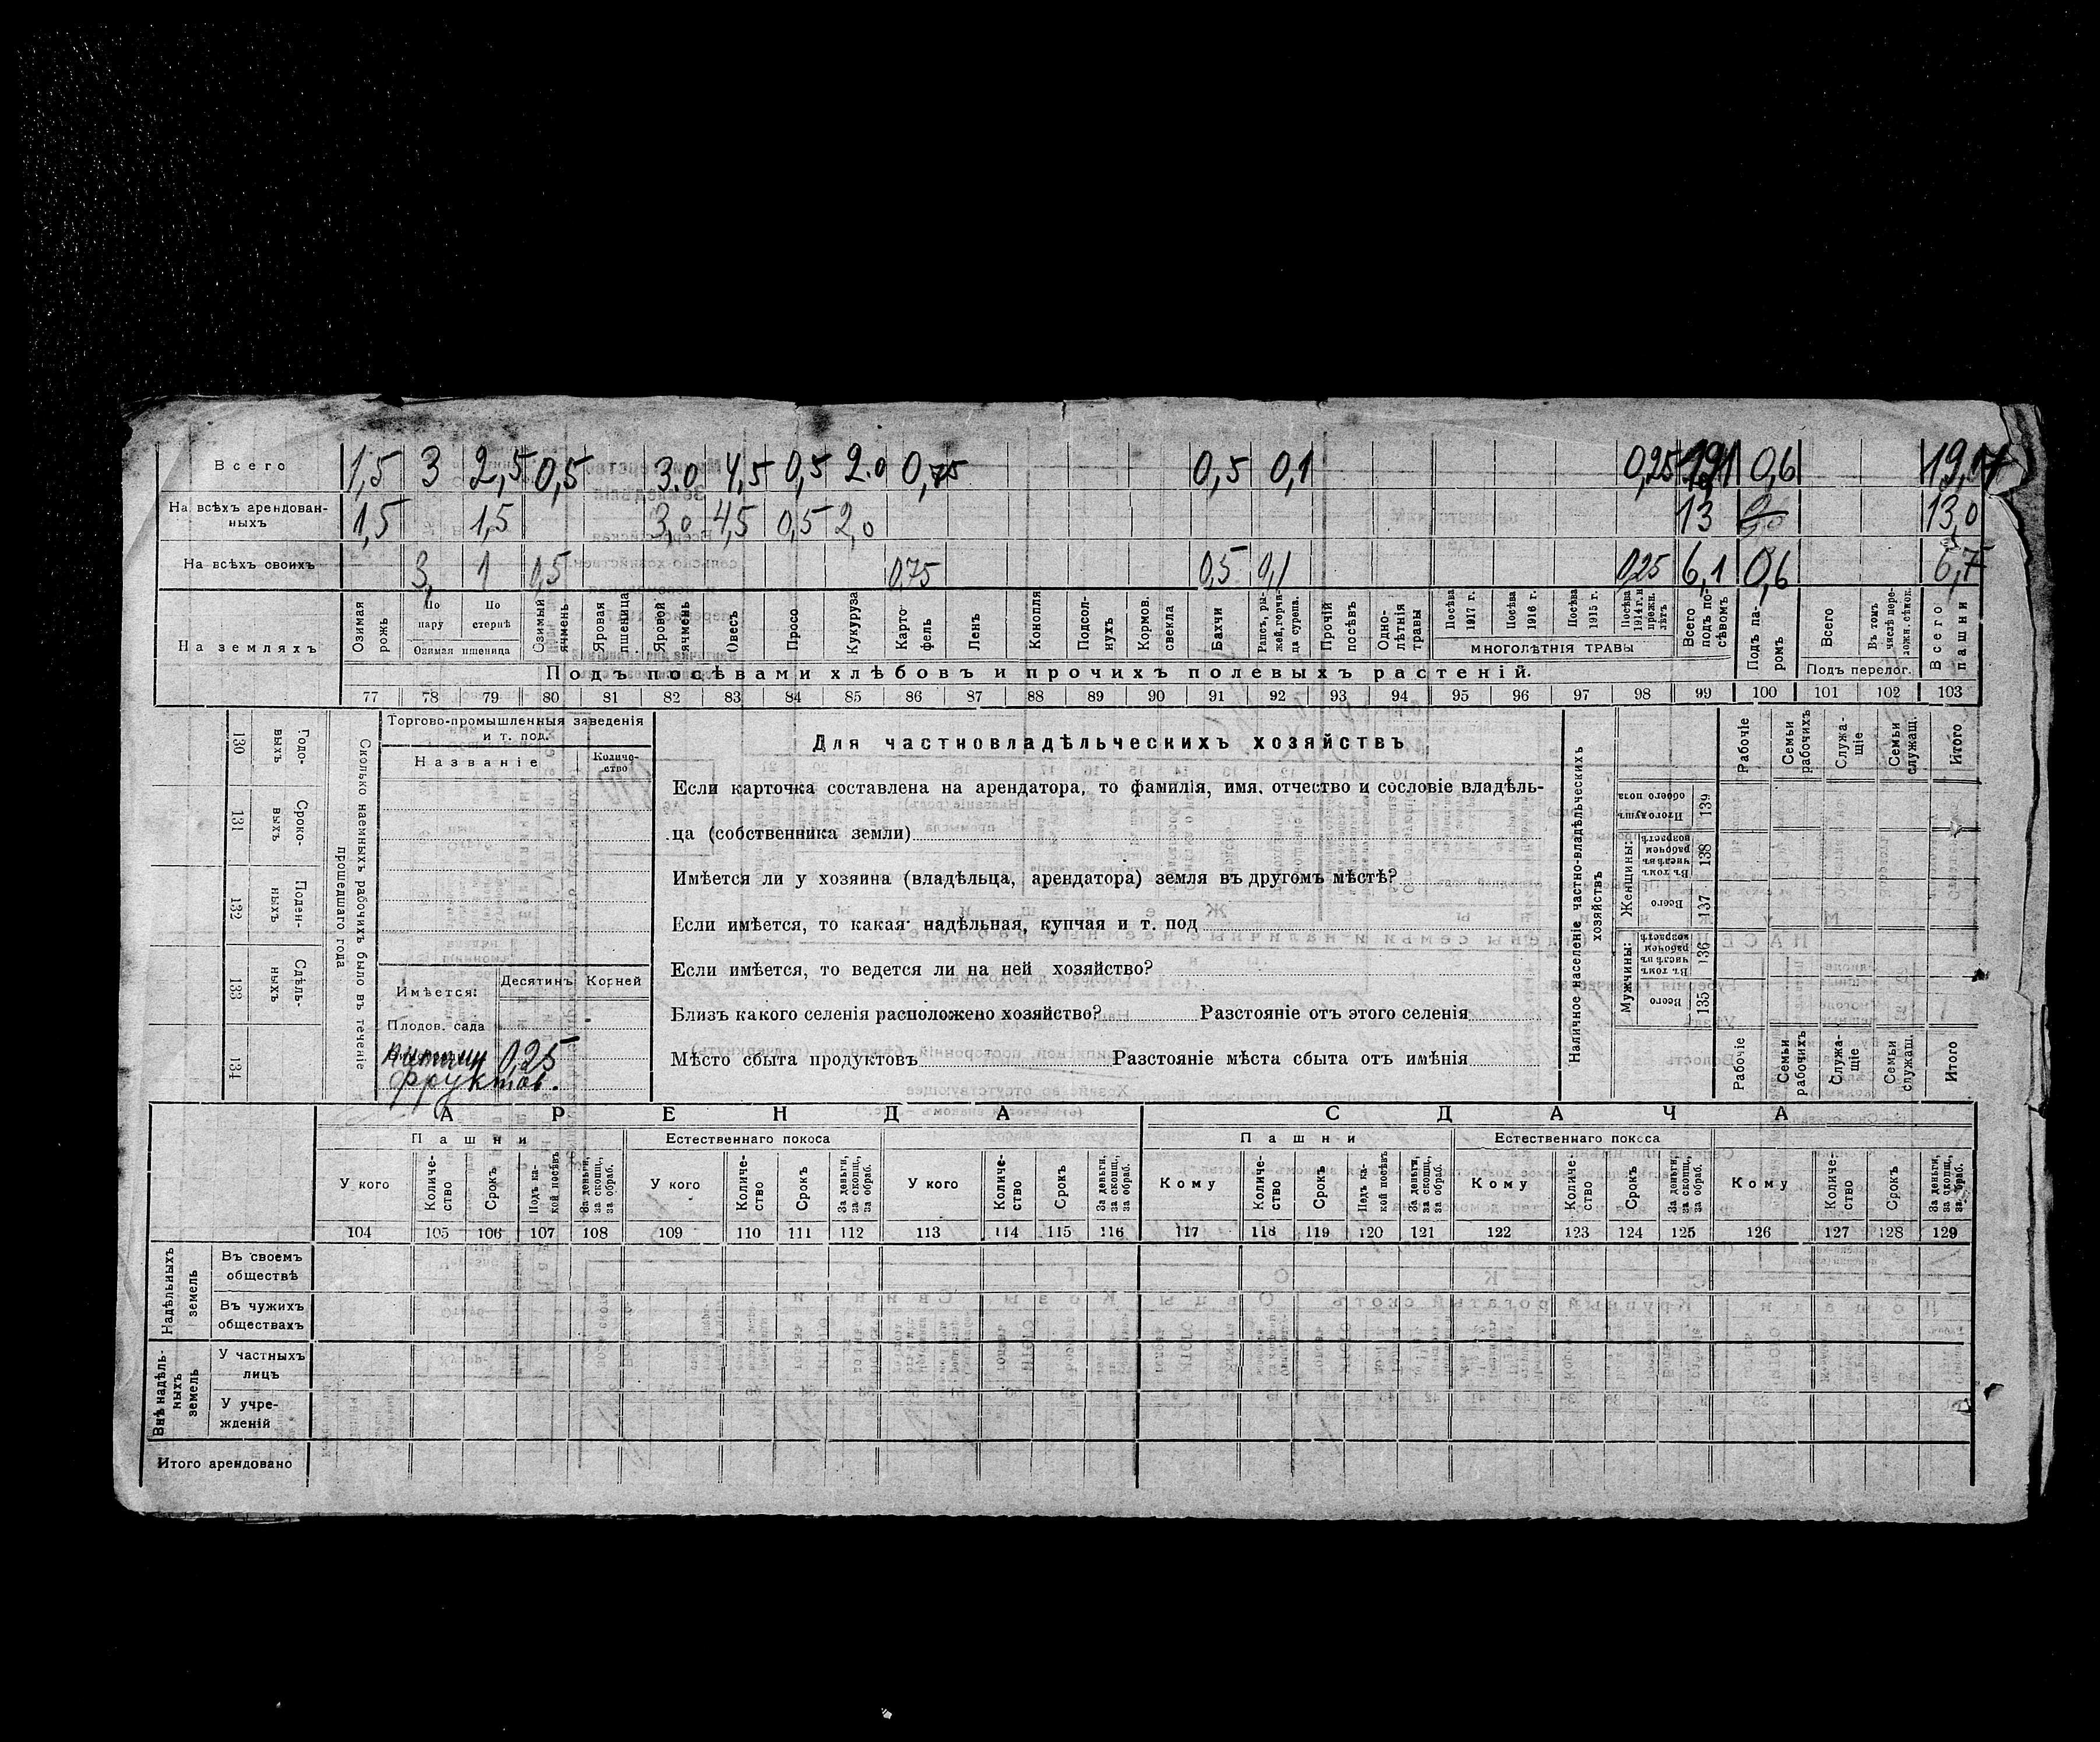 Всего 1,5 3 2,5 0,5 3.0 4,5 0,5 2.0 0,75 0,5 0,1 0,25 0,6
На всѣхъ арендован-
ныхъ 1,5 1,5 3,0 4,5 0,5 2,0 13 13,0
На всѣхъ своихъ 3, 1 0,5 0,75 0,5 0,1 0,25 6,1 0,6 6,7
На земляхъ
Озимая рожь
По пару
По стернѣ
Озимая пшеница
Озимый ячмень
Яровая пшеница
Яровой ячмень
Овесъ
Просо
Кукуруза
Карто-
фель
Ленъ
Конопля
Подсол-
нухъ
Кормов.
свекла
Бахчи
Рапсъ, ры-
жей, горчи-
ца сурепа.
Прочій
посѣвъ
Одно-
лѣтнія
травы
Посѣва
1917 г.
Посѣва
1916 г.
Посѣва
1915 г.
Посѣва
1914 г. и
прежн.
лѣтъ
МНОГОЛѢТНІЯ ТРАВЫ
Всего
подъ по-
сѣвомъ
Подъ па-
ромъ
Всего
Въ томъ
числѣ пере-
Подъ перелог.
Всего
пашни
Подъ посѣвами хлѣбовъ и прочихъ полевыхъ растеній.
77 78 79 80 81 82 83 84 85 86 87 88 89 90 91 92 93 94 95 96 97 98 99 100 101 102 103
130 Годо-
выхъ
131 Сроко-
выхъ
132 Поден-
ныхъ
133 Сдѣль-
ныхъ
134
Сколько наемныхъ рабочихъ было въ теченіе
прошедшаго года
Торгово-промышленныя заведенія
и т. под.
Названіе
Количе-
ство
Имѣется:
Десятинъ
Корней
Плодов. сада
0,25
фруктов.
Для частновладѣльческихъ хозяйствъ
Если карточка составлена на арендатора, то фамилія, имя, отчество и сословіе владѣль-
ца (собственника земли)
Имѣется ли у хозяина (владѣльца, арендатора) земля въ другомъ мѣстѣ?
Если имѣется, то какая: надѣльная, купчая и т. под
Если имѣется, то ведется ли на ней хозяйство?
Близъ какого селенія расположено хозяйство? Разстояніе отъ этого селенія
Мѣсто сбыта продуктовъ Разстояніе мѣста сбыта отъ имѣнія
Наличное населеніе частно-владѣльческихъ
хозяйствъ
Итого душъ
обоего пола
139
Женщины:
Въ томъ
числѣ въ
рабочемъ
возрастѣ
138
Всего
137
Мужчины:
Въ томъ
числѣ въ
рабочемъ
возрастѣ
136
Всего
135
Рабочіе
Семьи
рабочихъ
Служа-
щіе
Семьи
служащ.
Итого
Рабочіе
Семьи
рабочихъ
Служа-
щіе
Семьи
служащ.
Итого
АРЕНДА СДАЧА
Пашни Естественнаго покоса Пашни Естественнаго покоса
У кого
Количе-
ство
Срокъ
Подъ ка-
кой посѣвъ
За деньги,
за скопщ.,
за обраб.
У кого
Количе-
ство
Срокъ
За деньги,
за скопщ.,
за обраб.
У кого
Количе-
ство
Срокъ
За деньги,
за скопщ.,
за обраб.
Кому
Количе-
ство
Срокъ
Подъ ка-
кой посѣвъ
За деньги,
за скопщ.,
за обраб.
Кому
Количе-
ство
Срокъ
За деньги,
за скопщ.,
за обраб.
Кому
Количе-
ство
Срокъ
За деньги,
за скопщ.,
за обраб.
104 105 106 107 108 109 110 111 112 113 114 115 116 117 118 119 120 121 122 123 124 125 126 127 128 129
Надѣльныхъ
земель
Въ своемъ
обществѣ
Въ чужихъ
обществахъ
Внѣ надѣль-
ныхъ
земель
У частныхъ
лицъ
У учре-
жденій
Итого арендовано